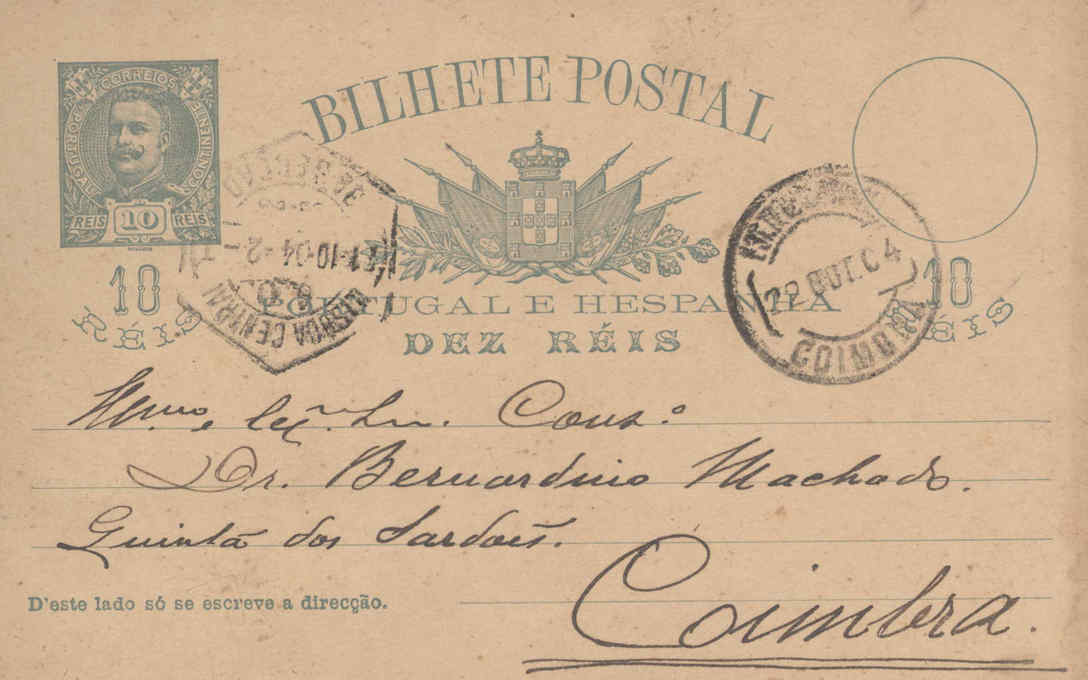 CORREIOS
PORTUGAL
CONTINENTE
REIS 10 REIS
BILHETE POSTAL
10 RÉIS
10 RÉIS
PORTUGAL E HESPANHA
DEZ RÉIS
3ª SECÇÃO
21-10-04
LISBOA CENTRAL
22 OUT. 04
COIMBRA
Illmo. e Exº. Sr. Cons.º
Dr. Bernardino Machado.
Quinta dos Sardões.
Coimbra.
D'este lado só se escreve a direcção.